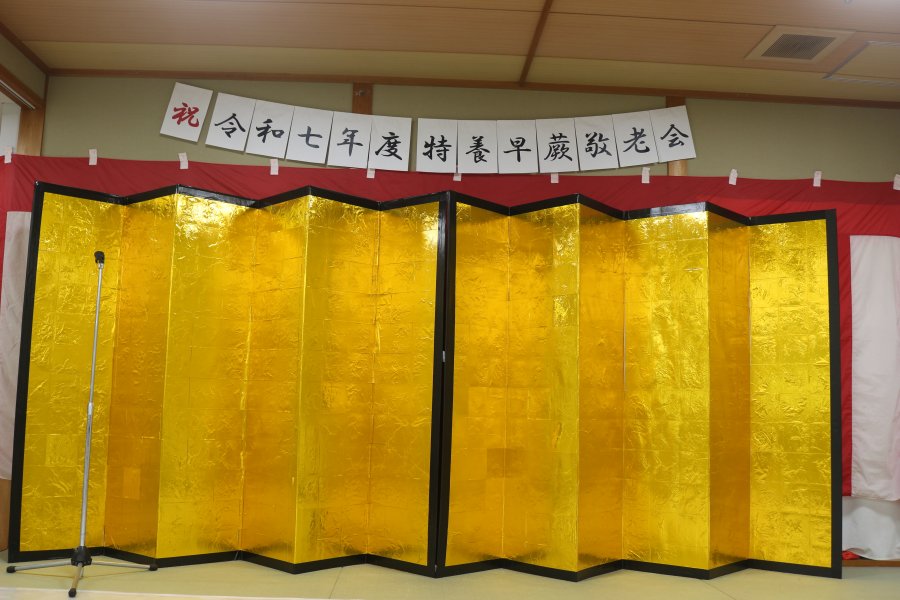 祝令和七年度特養早蕨敬老会